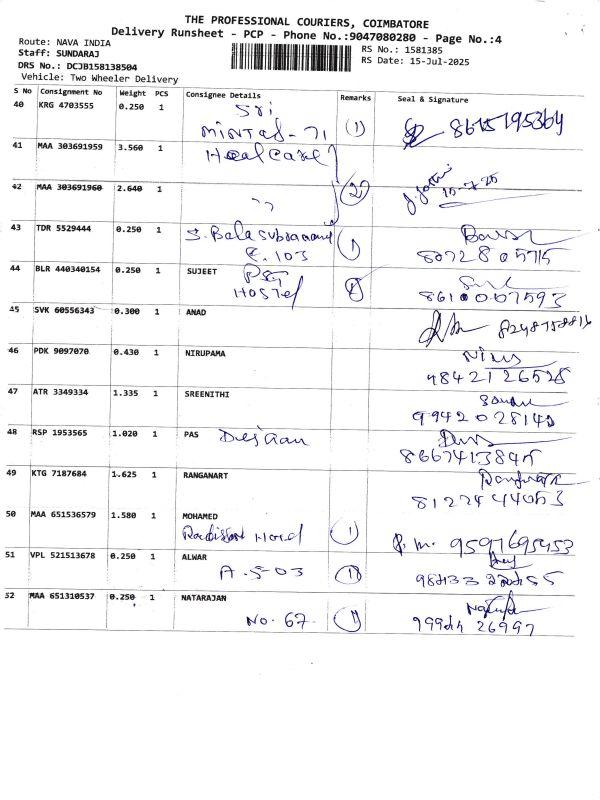 THE PROFESSIONAL COURIERS, COIMBATORE
Delivery Runsheet - PCP - Phone No.:9047080280 - Page No.:4
Route: NAVA INDIA
Staff: SUNDARAJ
DRS No.: DCJB158138504
Vehicle: Two Wheeler Delivery
RS No.: 1581385
RS Date: 15-Jul-2025
S No Consignment No Weight PCS Consignee Details Remarks Seal & Signature
40 KRG 4703555 0.250 1 Sri
(1)
41 MAA 303691959 3.560 1
42 MAA 303691960 2.640 1 " (2) 15-7-25
43 TDR 5529444 0.250 1 S. Balasubramani
E.103 (1) 8072805715
44 BLR 440340154 0.250 1 SUJEET PSG
Hostel 8610007593
45 SVK 60556343 0.300 1 ANAD
46 PDK 9097070 0.430 1 NIRUPAMA
9842126528
47 ATR 3349334 1.335 1 SREENITHI
9942028140
48 RSP 1953565 1.020 1 PAS
49 KTG 7187684 1.625 1 RANGANART
8122444053
50 MAA 651536579 1.580 1 MOHAMED
(1) 9597695453
51 VPL 521513678 0.250 1 ALWAR
A.503 (1)
52 MAA 651310537 0.250 1 NATARAJAN
No. 67 (1)